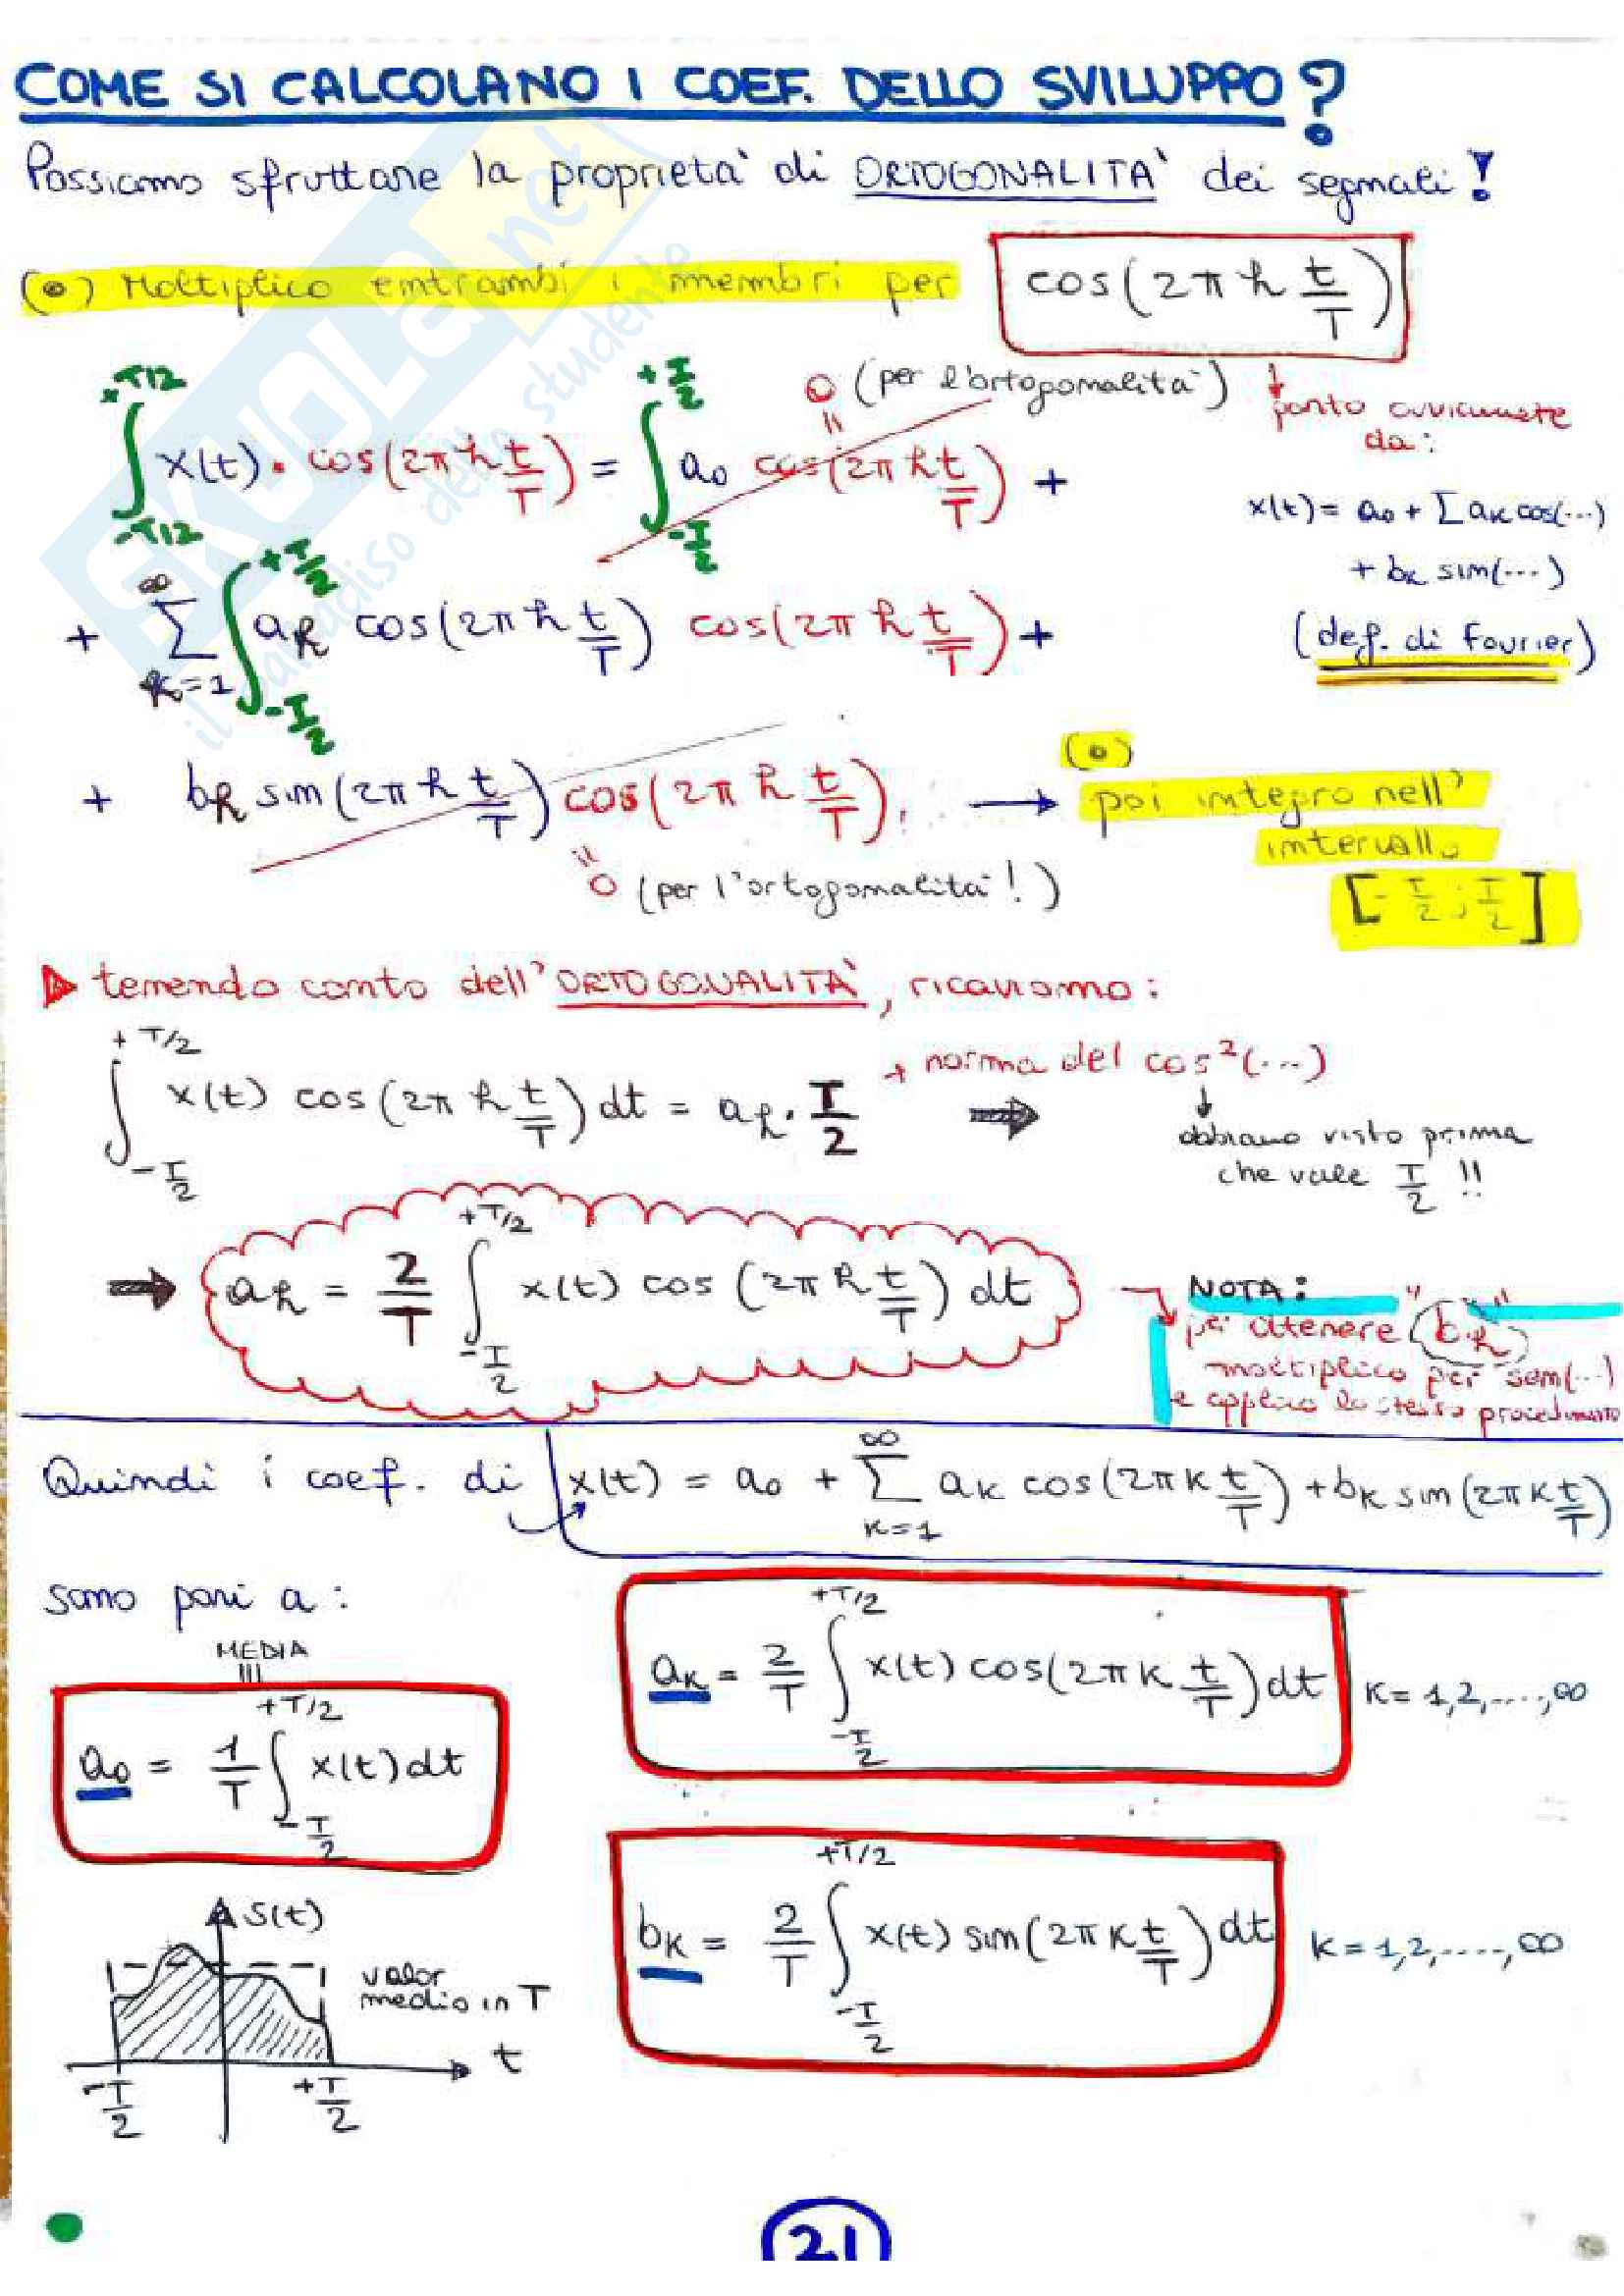 COME SI CALCOLANO I COEF. DELLO SVILUPPO?
Possiamo sfruttare la proprietà di ORTOGONALITÀ dei segnali!
(•) Moltiplico entrambi i membri per cos(2π h t/T)
∫_{-T/2}^{+T/2} x(t) • cos(2π h t/T) = ∫_{-T/2}^{+T/2} a0 cos(2π h t/T) +
0 (per l'ortogonalità)
parto ovviamente
da:
x(t) = a0 + Σ ak cos(...)
+ bk sin(...)
(def. di Fourier)
+ Σ_{k=1}^{∞} ∫_{-T/2}^{+T/2} ah cos(2π h t/T) cos(2π h t/T) +
+ bh sin(2π h t/T) cos(2π h t/T). →
0 (per l'ortogonalità!)
(•)
poi integro nell'
intervallo
[-T/2; T/2]
▷ tenendo conto dell'ORTOGONALITÀ, ricaviamo:
∫_{-T/2}^{+T/2} x(t) cos(2π h t/T) dt = ah · T/2 ⇒
norma del cos²(...)
↓
abbiamo visto prima
che vale T/2 !!
⇒ ah = 2/T ∫_{-T/2}^{+T/2} x(t) cos(2π h t/T) dt
NOTA:
per ottenere "bh"
moltiplico per sem(...)
e applico lo stesso procedimento
Quindi i coef. di x(t) = a0 + Σ_{k=1}^{∞} ak cos(2π k t/T) + bk sin(2π k t/T)
sono pari a:
MEDIA
a0 = 1/T ∫_{-T/2}^{+T/2} x(t) dt
ak = 2/T ∫_{-T/2}^{+T/2} x(t) cos(2π k t/T) dt K = 1,2,....,∞
bk = 2/T ∫_{-T/2}^{+T/2} x(t) sin(2π k t/T) dt K = 1,2,.....,∞
S(t)
valor
medio in T
t
-T/2
+T/2
21
SKUOLA.net
il paradiso dello studente